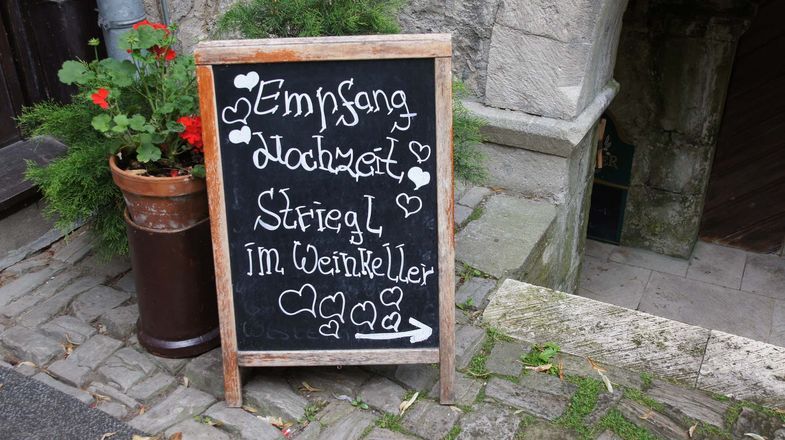 Empfang
Hochzeit
Striegl
im Weinkeller